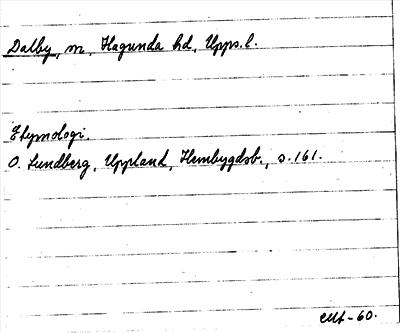 Dalby, sn, Hagunda hd, Upps.l.
Etymologi.
O. Lundberg, Uppland, Hembygdsb., s. 161.
-60.